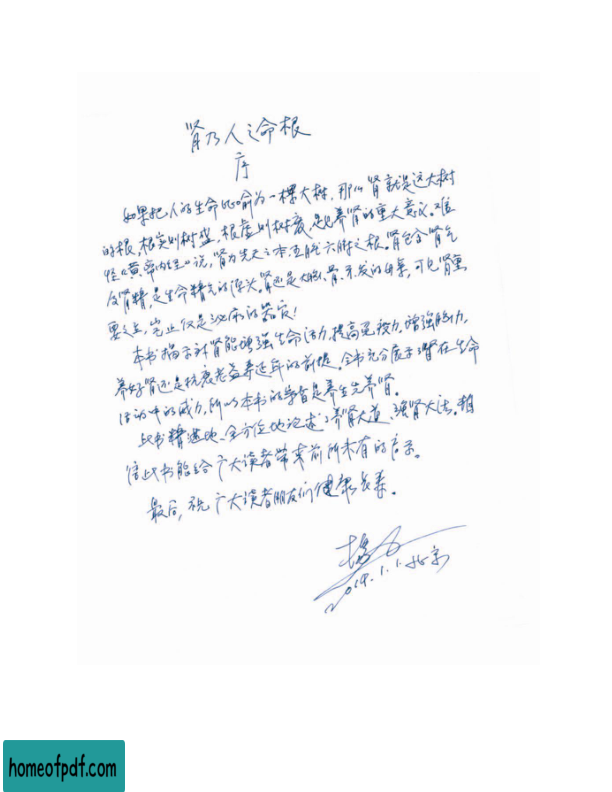 肾乃人之命根
序
如果把人的生命比喻为一棵大树,那么肾就是这大树
的根,根实则树盛,根虚则树衰,是也养肾的重大意义。难
怪《黄帝内经》说,肾为先天之本,五脏六腑之根。肾包含肾气
及肾精,是生命精气的源头。肾还是大脑、骨、头发的母亲,可见肾重
要之至,岂止仅是泌尿的器官!
本书揭示补肾能增强生命活力,提高免疫力,增强脑力,
养好肾还是抗衰老益寿延年的前提。全书充分展示了肾在生命
活动中的威力,所以本书的学旨是养生先养肾。
此书精湛地、全方位地论述了养肾大道、强肾大法。相
信此书能给广大读者带来前所未有的启示。
最后,祝广大读者朋友们健康长寿。
杨力
2019.1.1.北京
homeofpdf.com